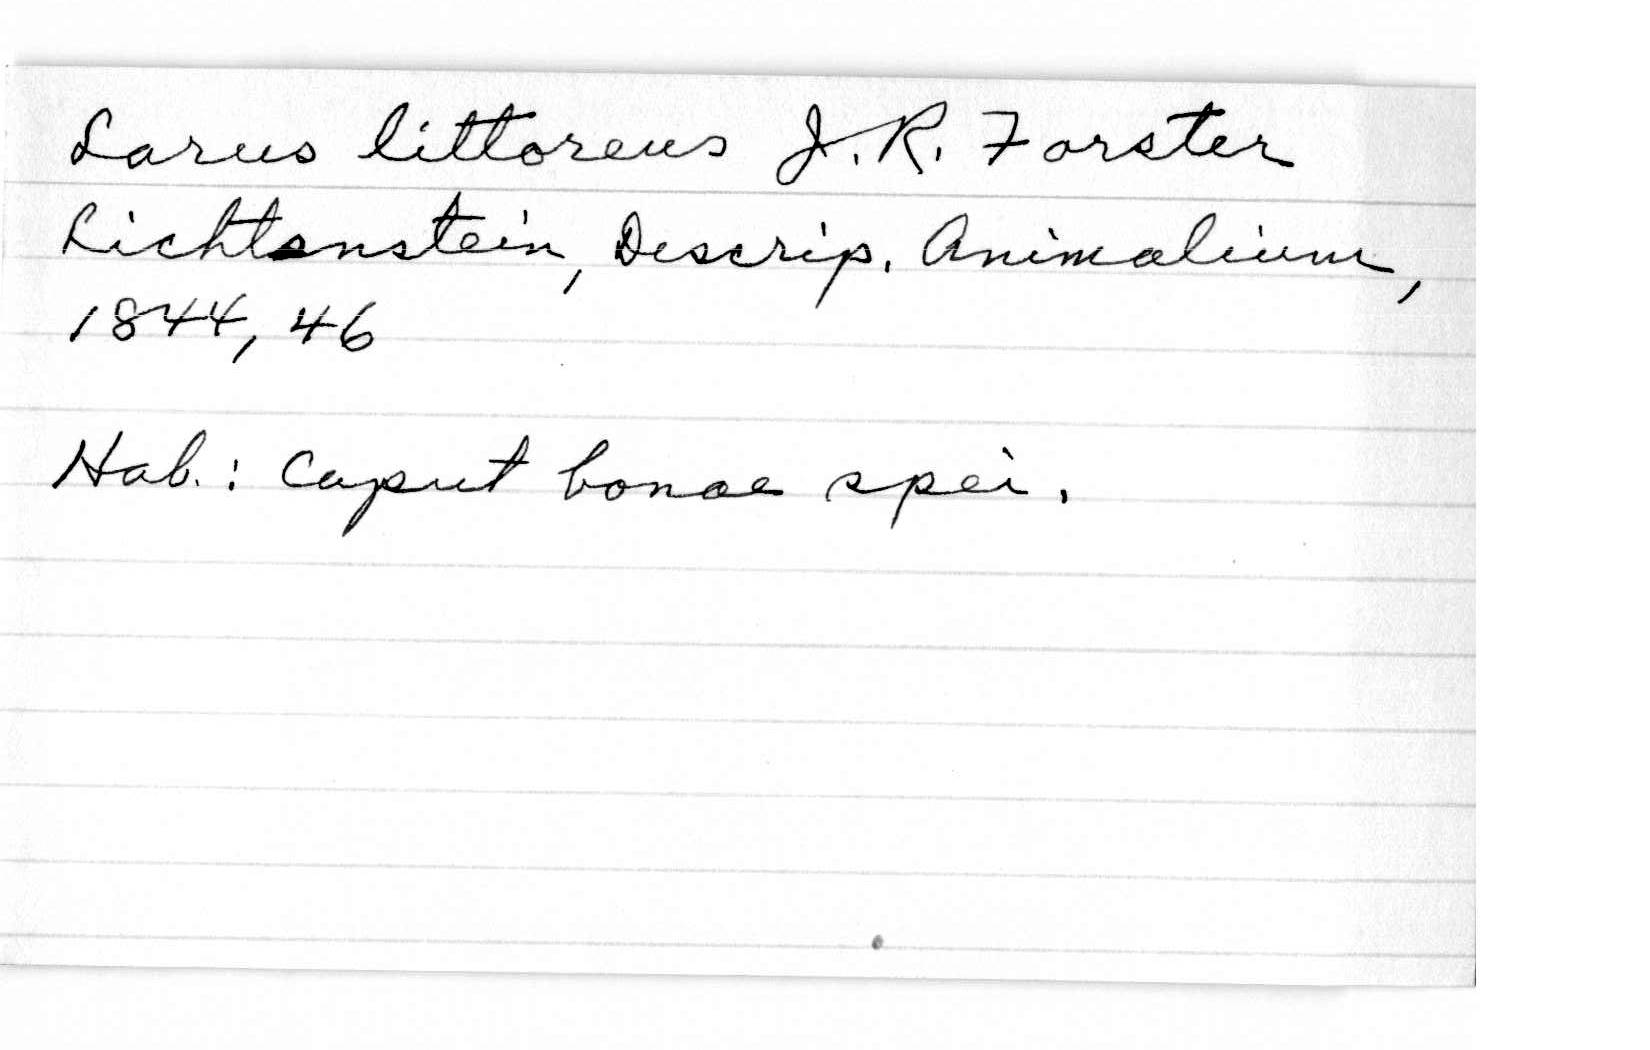 Larus littoreus J. R. Forster
Lichtenstein, Descrip. Animalium,
1844, 46
Hab.: Caput bonae spei.